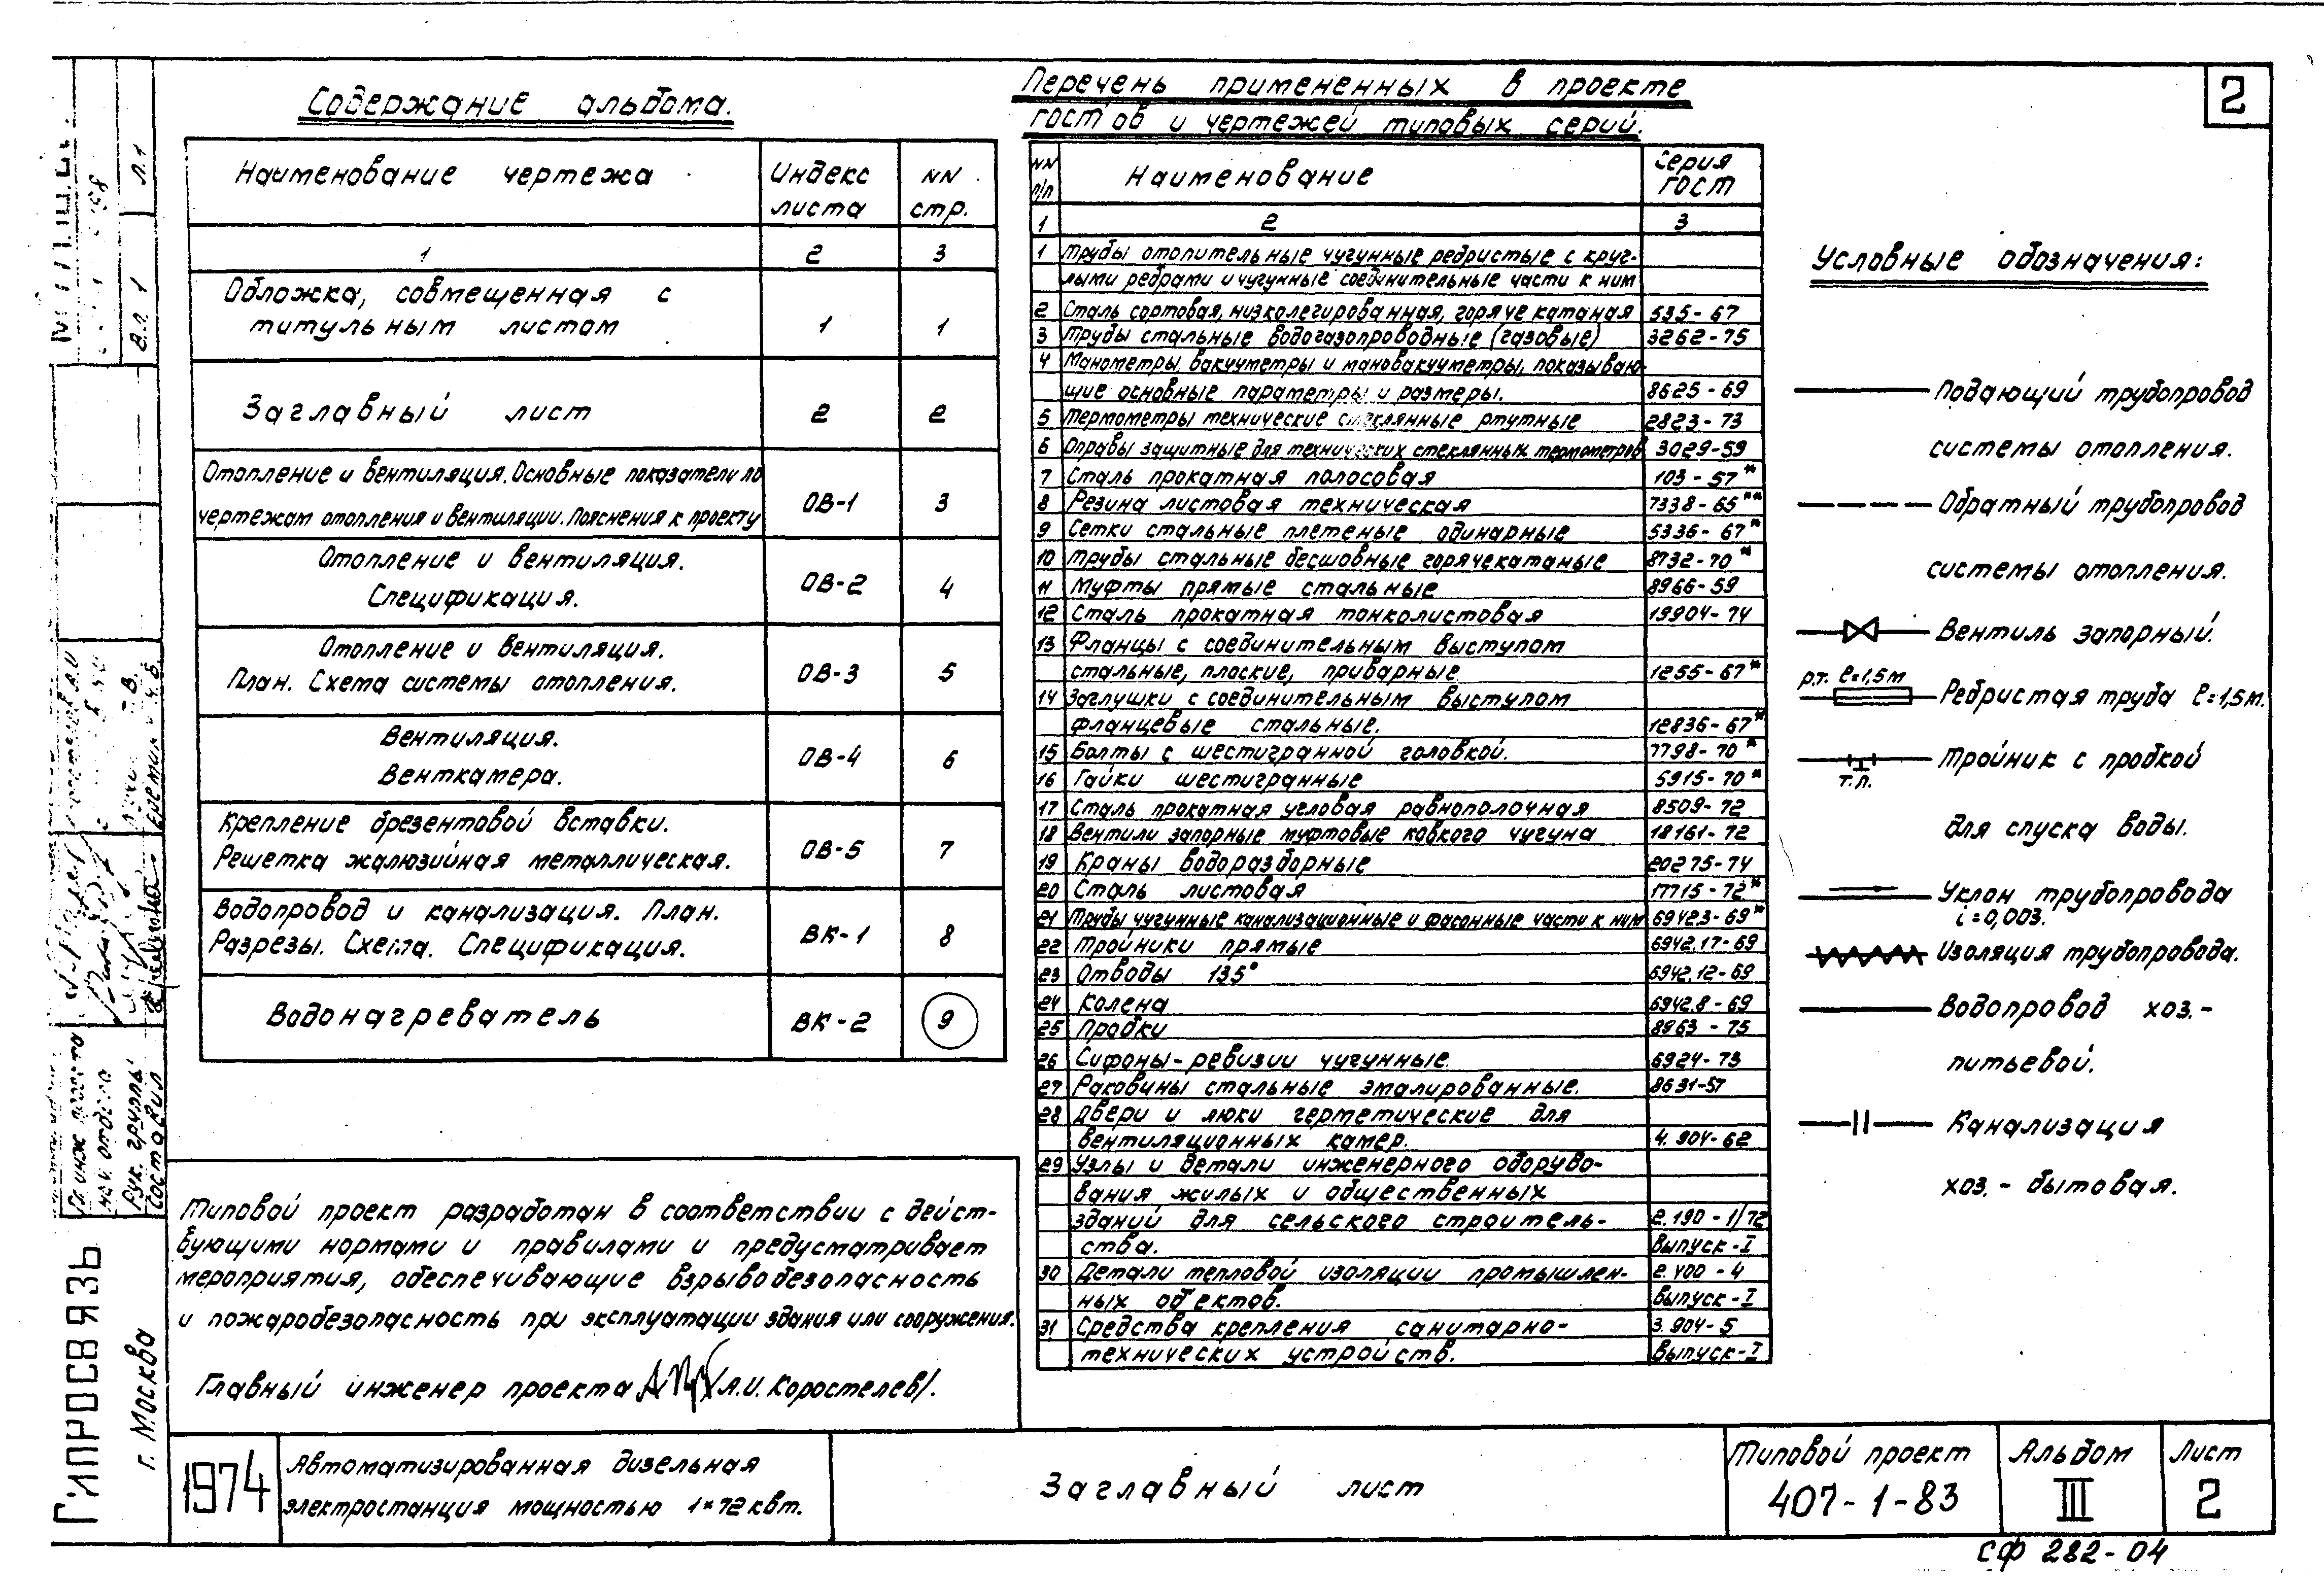 2
Содержание альбома.
Наименование чертежа
Индекс листа
NN стр.
1 2 3
Обложка, совмещенная с
титульным листом 1 1
Заглавный лист 2 2
Отопление и вентиляция. Основные показатели по
чертежам отопления и вентиляции. Пояснения к проекту ОВ-1 3
Отопление и вентиляция.
Спецификация. ОВ-2 4
Отопление и вентиляция.
План. Схема системы отопления. ОВ-3 5
Вентиляция.
Венткамера. ОВ-4 6
Крепление брезентовой вставки.
Решетка жалюзийная металлическая. ОВ-5 7
Водопровод и канализация. План.
Разрезы. Схема. Спецификация. ВК-1 8
Водонагреватель ВК-2 9
Типовой проект разработан в соответствии с дейст-
вующими нормами и правилами и предусматривает
мероприятия, обеспечивающие взрывобезопасность
и пожаробезопасность при эксплуатации здания или сооружения.
Главный инженер проекта /А.И. Коростелев/.
Перечень примененных в проекте
гостов и чертежей типовых серий.
NN п/п
Наименование
Серия ГОСТ
1 2 3
1 Трубы отопительные чугунные ребристые с круг-
лыми ребрами и чугунные соединительные части к ним
2 Сталь сортовая, низколегированная, горяче катаная 535-67
3 Трубы стальные водогазопроводные (газовые) 3262-75
4 Манометры, вакууметры и мановакууметры, показываю-
щие основные параметры и размеры. 8625-69
5 Термометры технические стеклянные ртутные 2823-73
6 Оправы защитные для технических стеклянных термометров 3029-59
7 Сталь прокатная полосовая 103-57*
8 Резина листовая техническая 7338-65**
9 Сетки стальные плетеные одинарные 5336-67*
10 Трубы стальные бесшовные горячекатаные 8732-70*
11 Муфты прямые стальные 8966-59
12 Сталь прокатная тонколистовая 19904-74
13 Фланцы с соединительным выступом
стальные, плоские, приварные 1255-67*
14 Заглушки с соединительным выступом
фланцевые стальные. 12836-67*
15 Болты с шестигранной головкой. 7798-70*
16 Гайки шестигранные 5915-70*
17 Сталь прокатная угловая равнополочная 8509-72
18 Вентили запорные муфтовые ковкого чугуна 18161-72
19 Краны водоразборные 20275-74
20 Сталь листовая 17715-72*
21 Трубы чугунные канализационные и фасонные части к ним 6942.3-69*
22 Тройники прямые 6942.17-69
23 Отводы 135° 6942.12-69
24 Колена 6942.8-69
25 Пробки 8963-75
26 Сифоны-ревизии чугунные. 6924-73
27 Раковины стальные эмалированные. 8631-57
28 Двери и люки герметические для
вентиляционных камер. 4.904-62
29 Узлы и детали инженерного оборудо-
вания жилых и общественных
зданий для сельского строитель- 2.190-1/72
ства. Выпуск-I
30 Детали тепловой изоляции промышлен- 2.400-4
ных обектов. Выпуск-I
31 Средства крепления санитарно- 3.904-5
технических устройств. Выпуск-I
Условные обозначения:
Подающий трубопровод
системы отопления.
Обратный трубопровод
системы отопления.
Вентиль запорный.
р.т. l=1,5м Ребристая труба l=1,5м.
т.п. Тройник с пробкой
для спуска воды.
Уклон трубопровода
i=0,003.
Изоляция трубопровода.
Водопровод хоз.-
питьевой.
Канализация
хоз.-бытовая.
Гипросвязь
г. Москва
Рук. группы
Составил
1974
Автоматизированная дизельная
электростанция мощностью 1×72 квт.
Заглавный лист
Типовой проект
407-1-83
Альбом
III
Лист
2
СФ 282-04